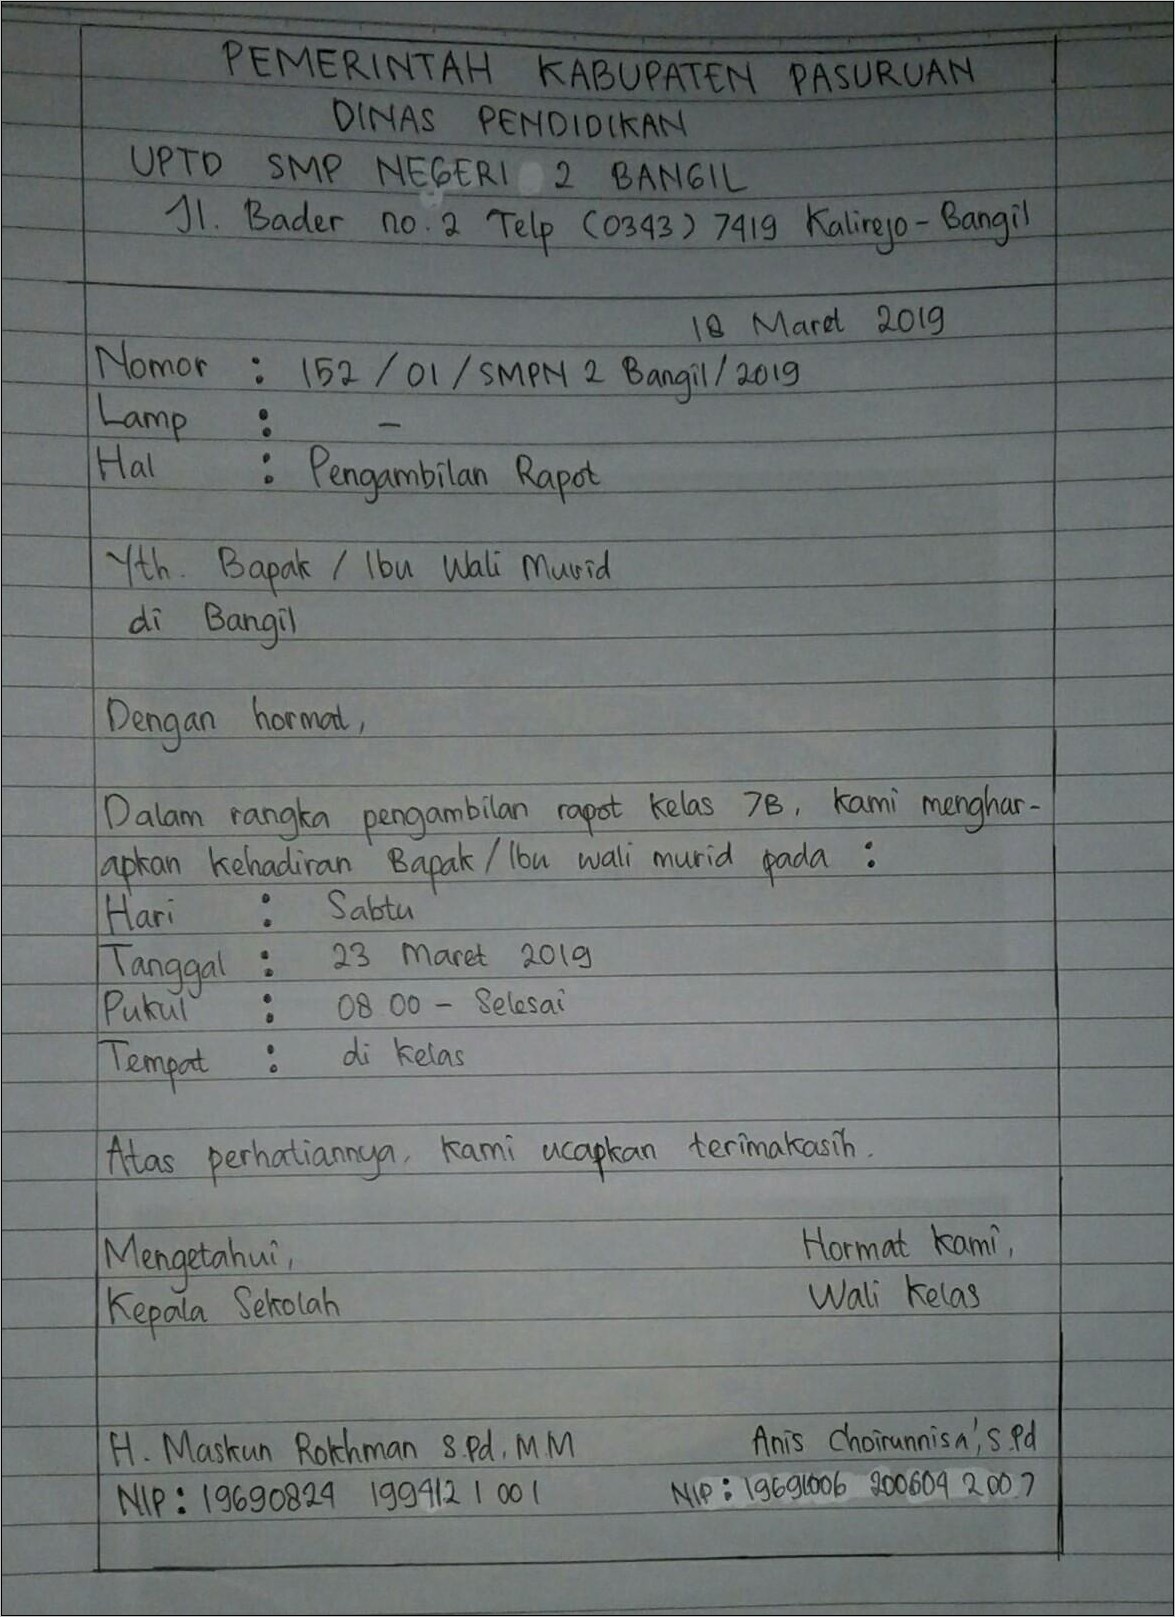 PEMERINTAH KABUPATEN PASURUAN
DINAS PENDIDIKAN
UPTD SMP NEGERI 2 BANGIL
Jl. Bader no. 2 Telp (0343) 7419 Kalirejo - Bangil
18 Maret 2019
Nomor : 152 / 01 / SMPN 2 Bangil / 2019
Lamp : -
Hal : Pengambilan Rapot
Yth. Bapak / Ibu Wali Murid
di Bangil
Dengan hormat,
Dalam rangka pengambilan rapot kelas 7B, kami menghar-
apkan kehadiran Bapak / Ibu wali murid pada :
Hari : Sabtu
Tanggal : 23 Maret 2019
Pukul : 08 00 - Selesai
Tempat : di kelas
Atas perhatiannya, kami ucapkan terimakasih.
Mengetahui, Hormat kami,
Kepala Sekolah Wali Kelas
H. Maskun Rokhman S.Pd, MM Anis Choirunnisa', S.Pd
NIP : 19690824 199412 1 001 NIP : 19691006 200604 2 007